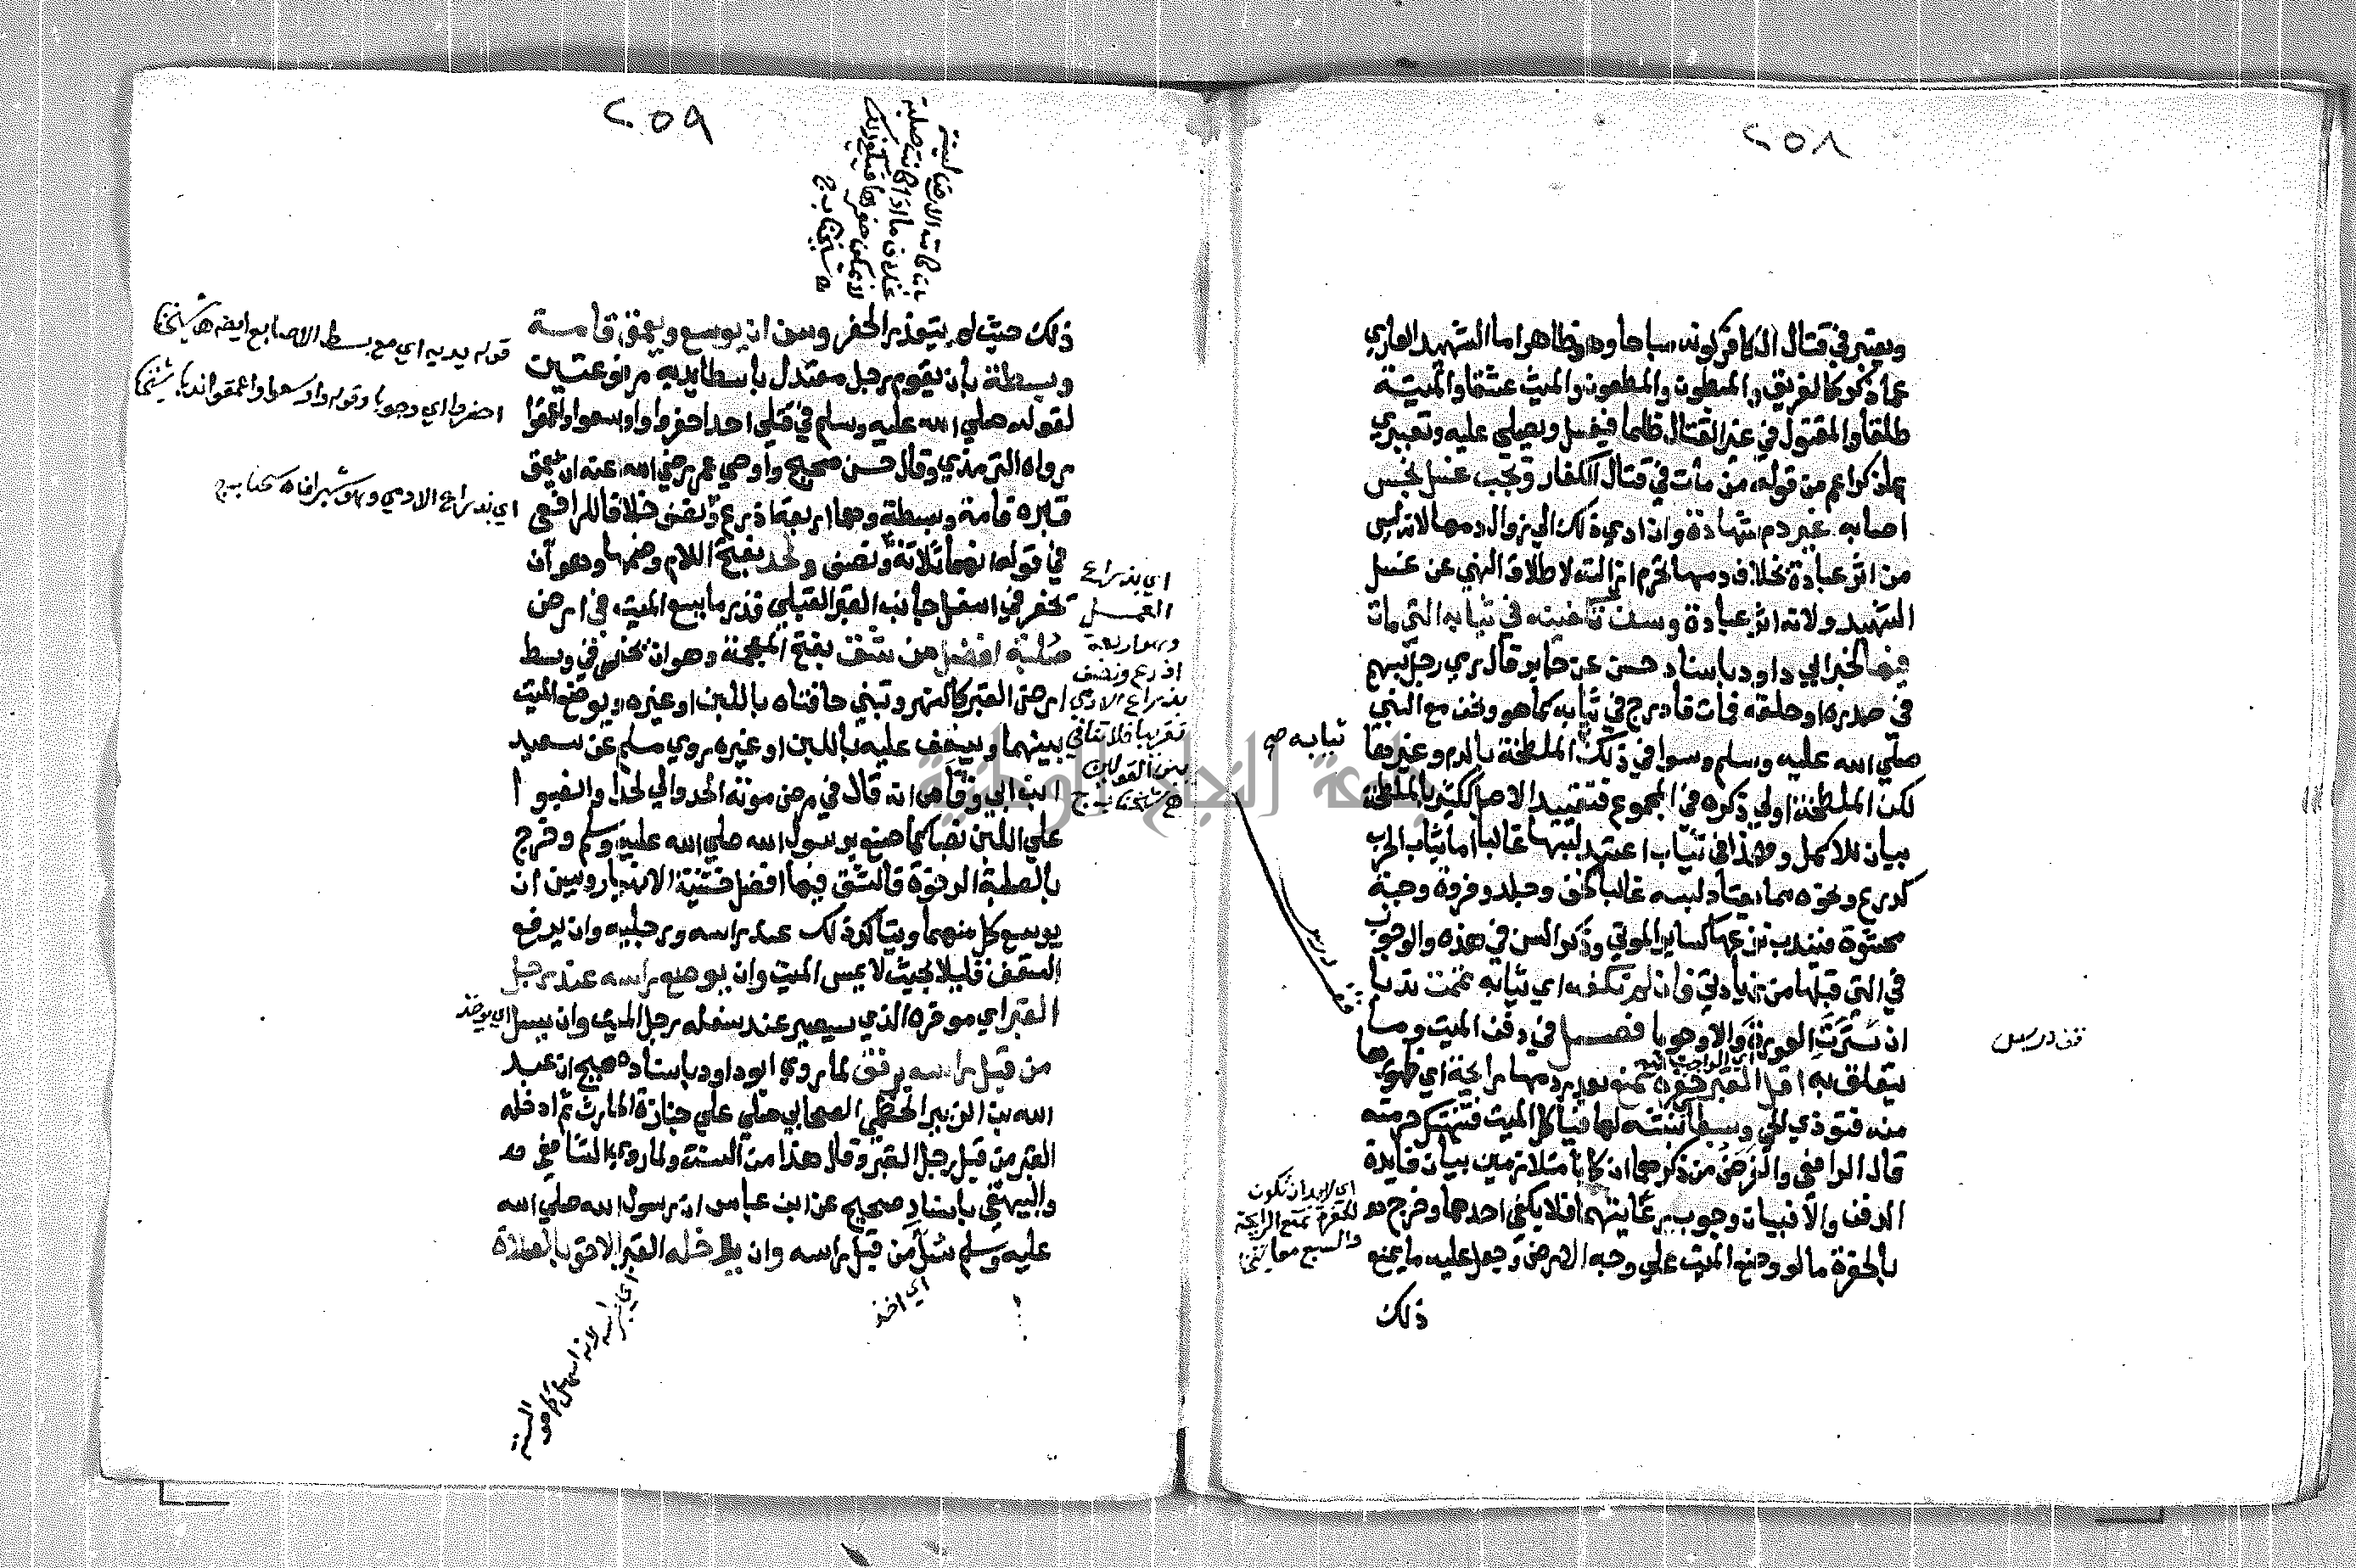 ٢٥٨
ويعتبر في قتال الكافر كونه مباحا وهو ظاهر اما الشهيد العاري
عما ذكر كالغريق والمبطون والمطعون والميت عشقا والميتة
طلقا والمقتول في غير القتال ظلما فيغسل ويصلي عليه وتعبيري
بما ذكر اعم من قوله من مات في قتال الكفار وتجب غسل نجس
اصابه غير دم شهادة وان ادي ذلك الي زوال دمها لانه ليس
من اثر عبادة بخلاف دمها تحرم ازالته لاطلاق النهي عن غسل
الشهيد ولانه اثر عبادة وسن تكفينه في ثيابه التي مات
فيها لخبر ابي داود باسناد حسن عن جابر قال رمي رجل بسهم
في صدره او حلقه فمات فادرج في ثيابه كما هو ونحن مع النبي
صلي الله عليه وسلم وسوا في ذلك الملطخة بالدم وغيرها
ثيابه صح
لكن الملطخة اولي ذكره في المجموع فتقييد الاصل ككثير بالملطخة
بيان للاكمل وهذا في ثياب اعتيد لبسها غالبا اما ثياب الحرب
كدرع ونحوه مما يعتاد لبسه غالبا كخف وجلد وفروة وجبة
محشوة فيندب نزعها كساير الموتي وذكر السن في هذه والوجوب
في التي قبلها من زيادتي فان لم تكفه اي ثيابه تممت ندبا
ان سترت العورة والا وجوبا فصل في دفن الميت وما
قف درس
يتعلق به اقل القبر حفرة تمنع بعد ردمها رايحة اي ظهورها
منه فتوذي الحي وسبعا نبشه لها فياكل الميت فتنتهك حرمته
قال الرافعي والغرض من ذكرهما ان كانا متلازمين بيان فايدة
الدفن والا فبيان وجوب رعايتهما فلا يكفي احدهما وخرج
بالحفرة ما لو وضع الميت علي وجه الارض وجعل عليه ما يمنع
اي لا بد ان تكون
الحفرة تمنع الرايحة
والسبع معا
ذلك
٢٥٩
ذلك حيث لم يتعذر الحفر وسن ان يوسع ويعمق قامة
وبسطة بأن يقوم رجل معتدل باسطا يديه مرفوعتين
لقوله صلي الله عليه وسلم في قتلي احد احفروا واوسعوا واعمقوا
رواه الترمذي وقال حسن صحيح واوصي عمر رضي الله عنه ان يعمق
قبره قامة وبسطة وهما اربعة اذرع ونصف خلافا للرافعي
في قوله انهما ثلاثة ونصف ولحد بفتح اللام وضمها وهو أن
يحفر في اسفل جانب القبر القبلي قدر ما يسع الميت في ارض
صلبة افضل من شق بفتح المعجمة وهو ان يحفر في وسط
ارض القبر كالنهر وتبني حافتاه باللبن او غيره ويوضع الميت
بينهما ويسقف عليه باللبن او غيره روي مسلم عن سعيد
ابن ابي وقاص انه قال في مرض موته الحدوا لي لحدا وانصبوا
علي اللبن نصبا كما صنع برسول الله صلي الله عليه وسلم وخرج
بالصلبة الرخوة فالشق فيها افضل خشية الانهيار وسن ان
يوسع كل منهما ويتاكد ذلك عند راسه ورجليه وان يرفع
السقف قليلا بحيث لا يمس الميت وان يوضع راسه عند رجل
القبر اي موخره الذي سيصير عند سفله رجل الميت وان يسل
اي يوخذ
من قبل راسه برفق لما روي ابو داود باسناد صحيح ان عبد
الله بن الزبير الخطمي الصحابي صلي علي جنازة الحارث ثم ادخله
القبر من قبل رجل القبر وقال هذا من السنة ولما روي الشافعي
والبيهقي باسناد صحيح عن ابن عباس ان رسول الله صلي الله
عليه وسلم سل من قبل راسه وان يدخله القبر الاحق بالصلاة
اي اخذ
قوله يديه اي مع بسط الاصابع ايضا ه شيخنا
احفروا اي وجوبا وقوله واوسعوا واعمقوا اي ندبا شيخنا
اي بذراع الادمي وهو شبران
اي بذراع
العمل
وهو اربعة
اذرع ونصف
بذراع الادمي
تقريبا فلا تنافي
بين القولين
بان كانت الارض لينة
بخلاف ما اذا كانت صلبة
جامعة النجاح الوطنية